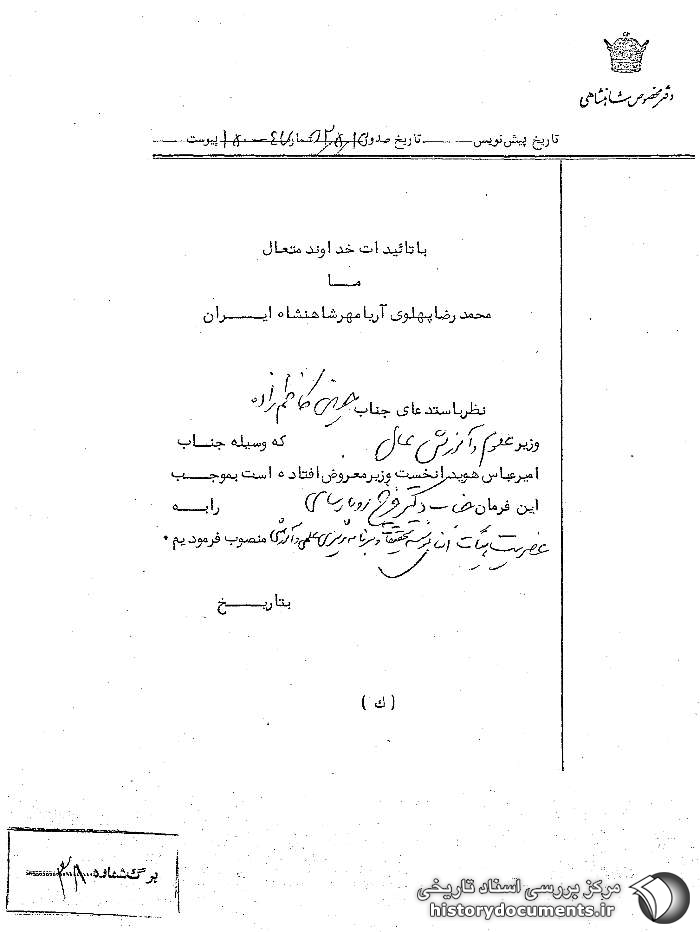 دفتر مخصوص شاهنشاهی
تاریخ پیش نویس تاریخ صدور شماره پیوست
با تائیدات خداوند متعال
مـا
محمد رضا پهلوی آریامهر شاهنشاه ایـــران
نظر باستدعای جناب حسین کاظم زاده
وزیر علوم و آموزش عالی که وسیله جناب
امیرعباس هویدا نخست وزیر معروض افتاده است بموجب
این فرمان جناب دکتر فرخ رو پارسای را به
عضویت هیئت امنای موسسه تحقیقات و برنامه ریزی علمی و آموزشی منصوب فرمودیم .
بتاریـــخ
( ك )
برگ شماره ۲۸
مرکز بررسی اسناد تاریخی
historydocuments.ir